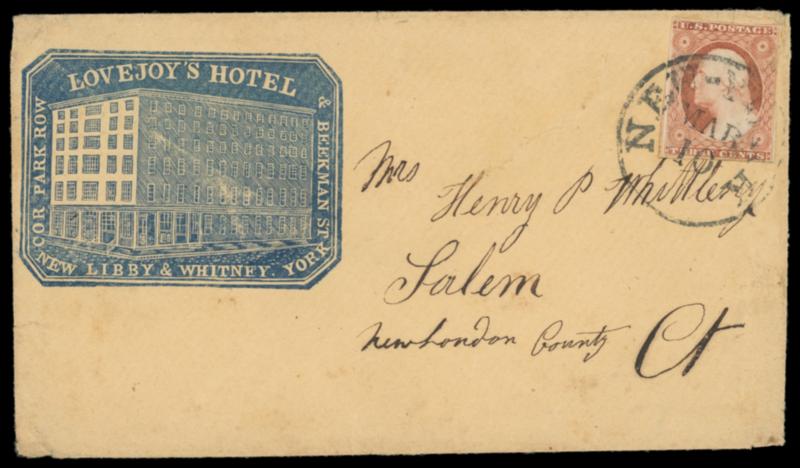 LOVEJOY'S HOTEL
COR PARK ROW
& BEEKMAN ST
NEW LIBBY & WHITNEY. YORK
U.S. POSTAGE
CENTS
NEW-Y
MAR
10
Mrs
Henry P Whittlesy
Salem
New London County
Ct